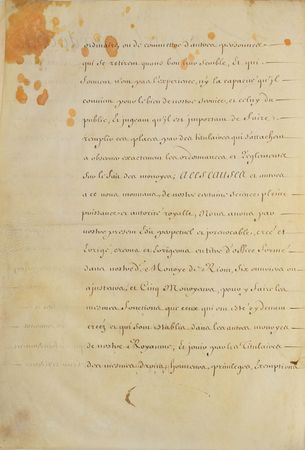 ordinaires, ou de commettre d'autres personnes
qui se retirent quand bon leur semble, Et qui
souvent n'ont pas l'experience, ny la capacité qu'il
convient pour le bien de nostre service, et celuy du
public, Et jugeant qu'il est important de faire
remplir ces places par des titulaires qui s'attachent
a observer exactement les ordonnances et Reglements
sur le fait des monoyes; A CES CAUSES et autres
a ce nous mouvans, de nostre certaine science, pleine
puissance et autorité royalle, Nous avons par
nostre present Edit perpetuel et irrevocable, créé et
Erigé, creons et Erigeons en titre d'office formé
dans nostre de Monoye de Riom, six ouvriers ou
ajusteurs, et Cinq Monoyeurs, pour y faire les
mesmes fonctions que ceux qui ont esté cy devant
créez et qui sont establis dans les autres monoyes
de nostre Royaume, Et jouir par les Titulaires
des mesmes droits, honneurs, privileges, Exemptions